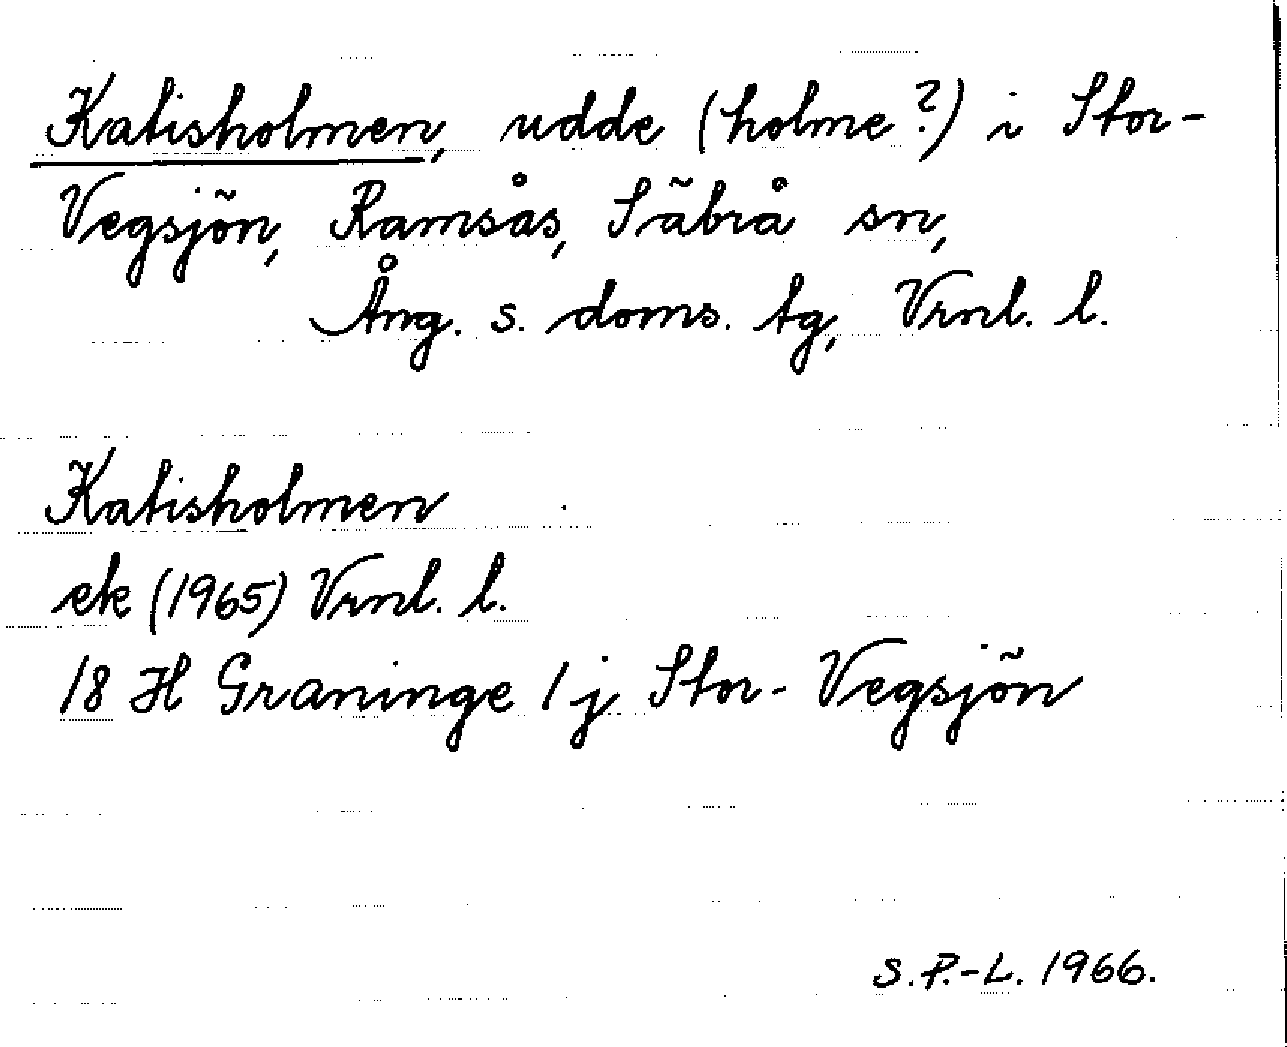 Katisholmen, udde (holme?) i Stor-
Vegsjön, Ramsås, Säbrå sn,
Ång. s. doms. tg, Vrnl. l.
Katisholmen
ek (1965) Vrnl. l.
18 H Graninge 1 j Stor-Vegsjön
S.P.-L. 1966.